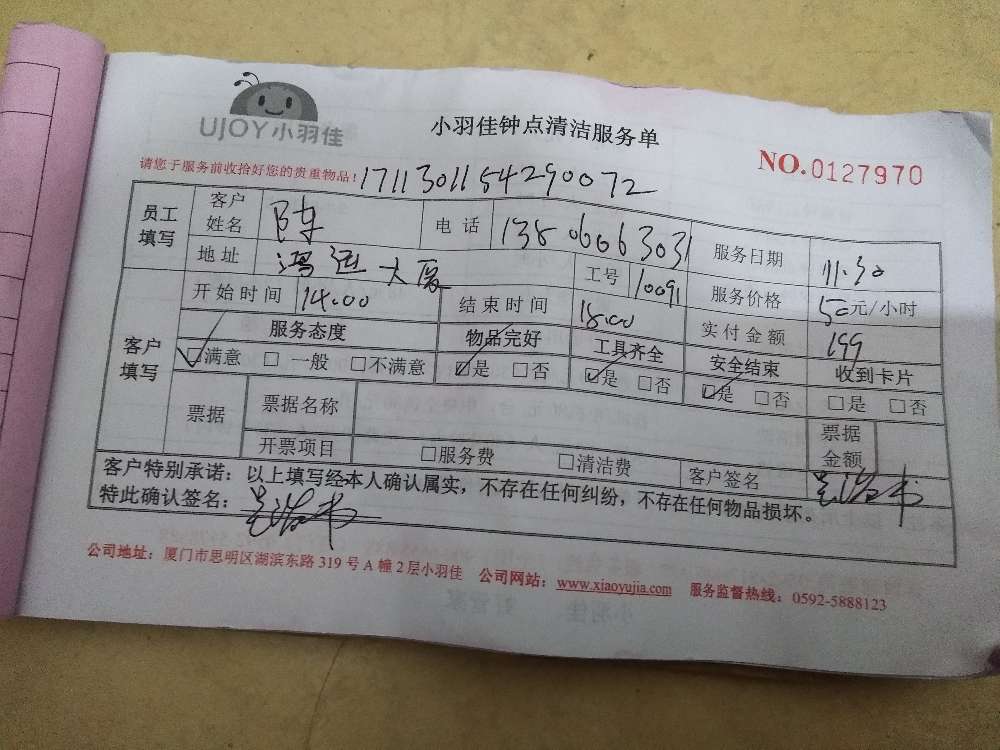 UJOY小羽佳
小羽佳钟点清洁服务单
NO.0127970
请您于服务前收拾好您的贵重物品！1711301154290072
员工填写 客户姓名 陈 电话 13806063031 服务日期 11.30
地址 鸿运大厦 工号 10091 服务价格 50元/小时
开始时间 14.00 结束时间 18.00 实付金额 199
客户填写 服务态度 物品完好 工具齐全 安全结束 收到卡片
☑满意 □一般 □不满意 ☑是 □否 ☑是 □否 ☑是 □否 □是 □否
票据 票据名称 票据金额
开票项目 □服务费 □清洁费 客户签名
客户特别承诺：以上填写经本人确认属实，不存在任何纠纷，不存在任何物品损坏。
特此确认签名：
公司地址：厦门市思明区湖滨东路319号A幢2层小羽佳 公司网站：www.xiaoyujia.com 服务监督热线：0592-5888123